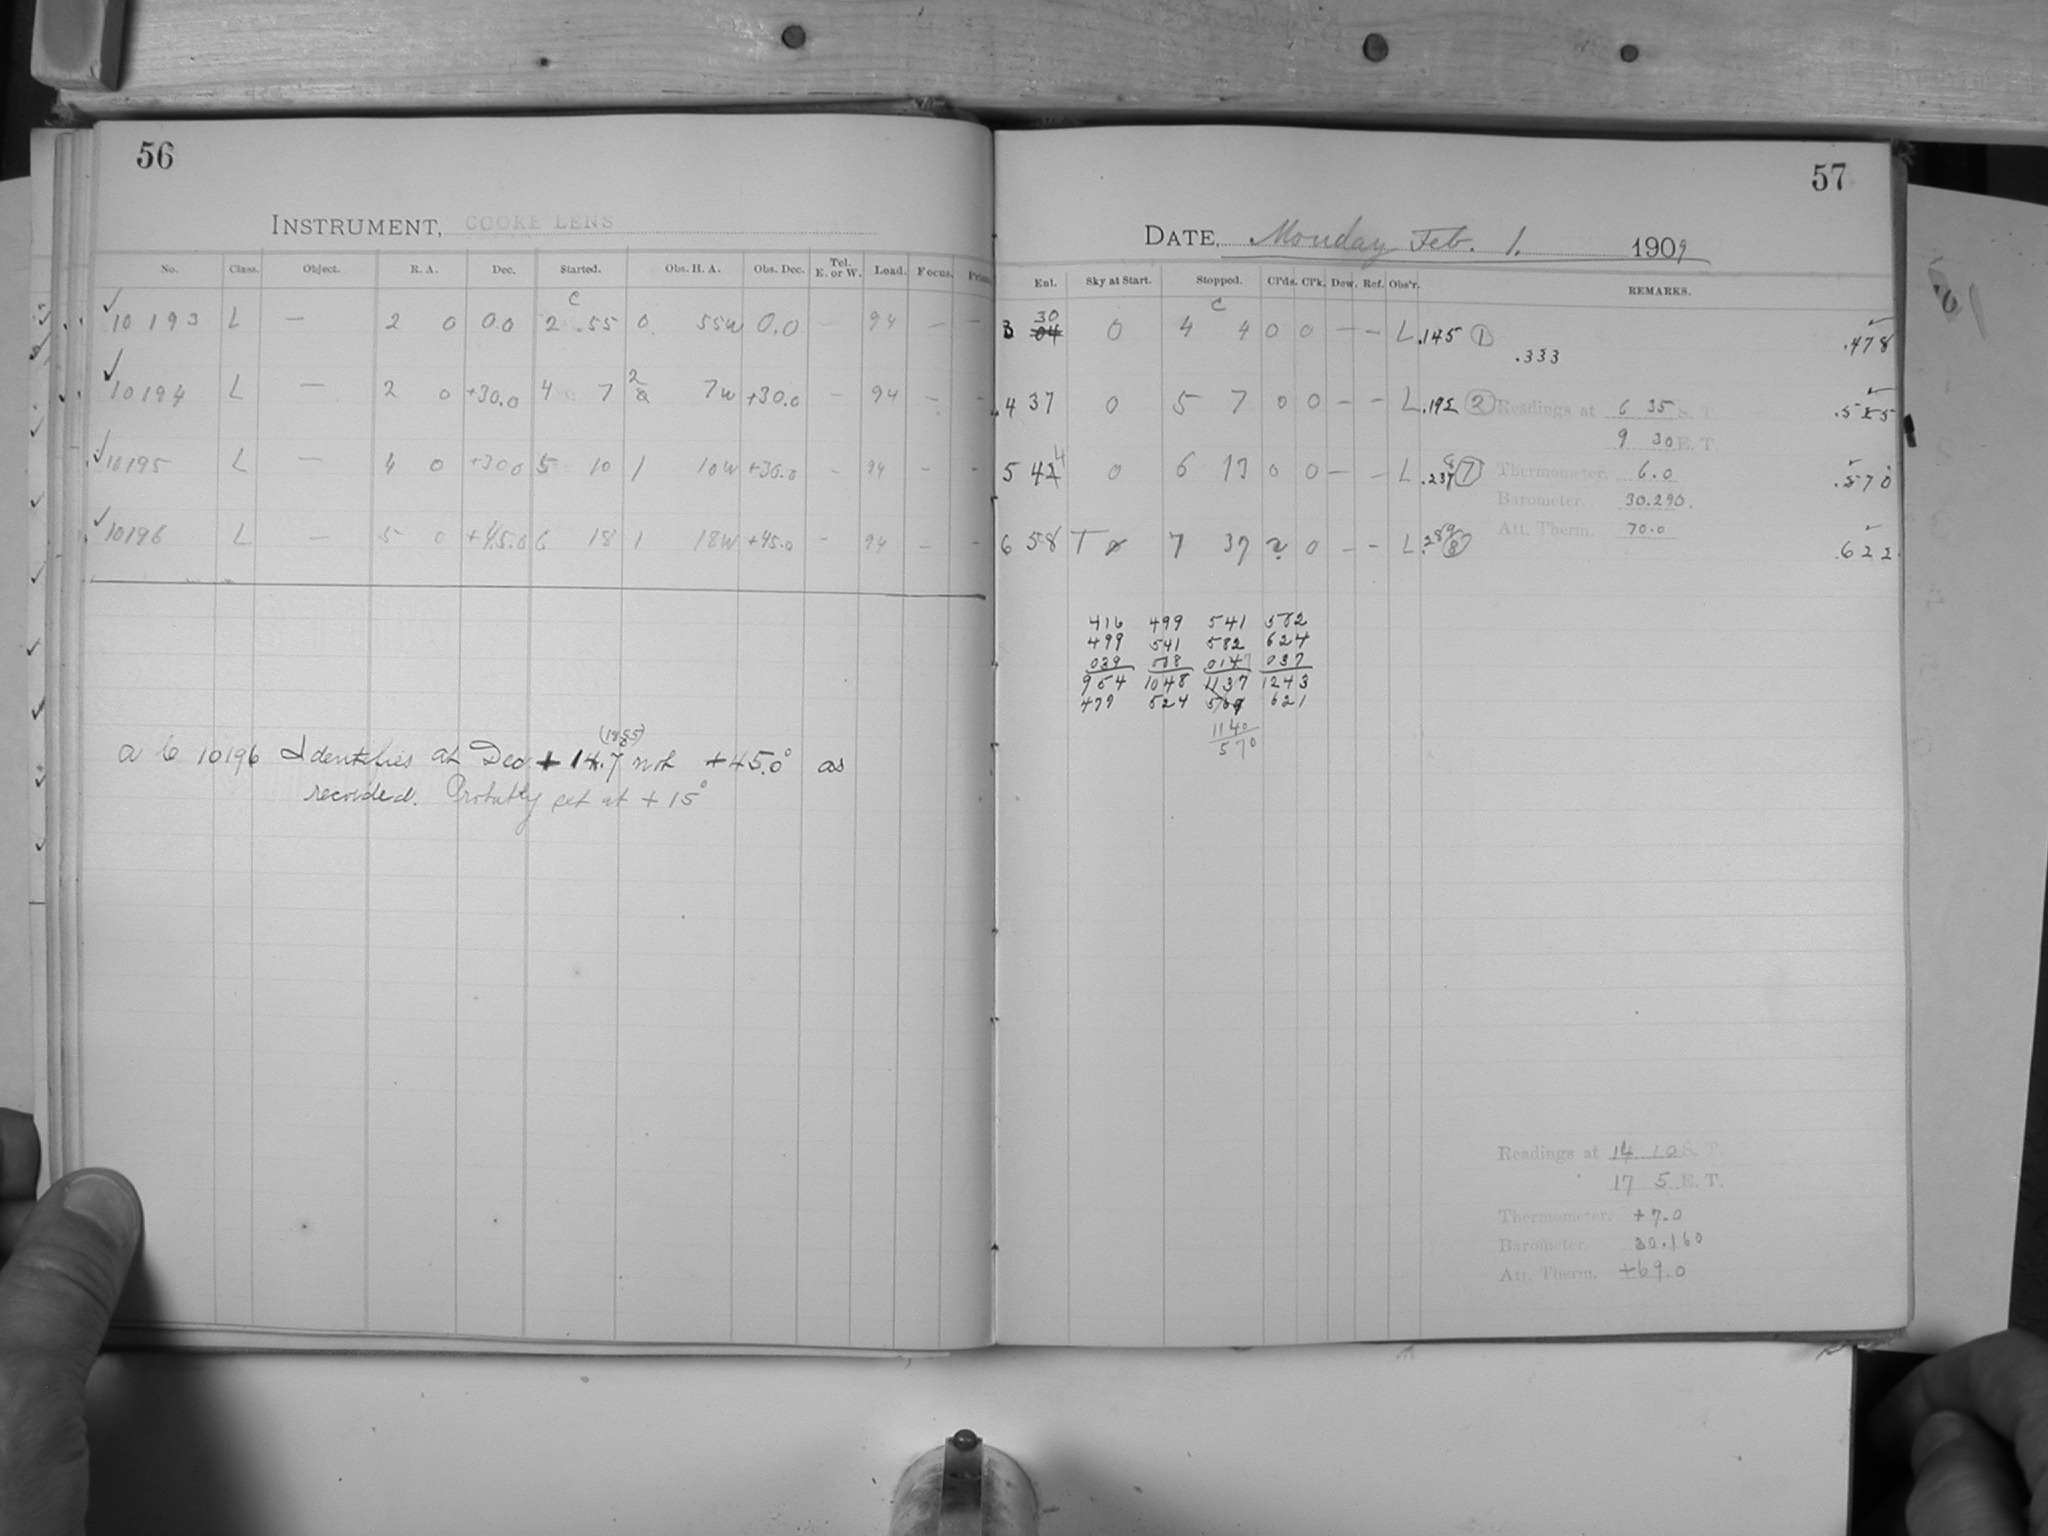 56
INSTRUMENT, COOKE LENS
No. Class. Object. R. A. Dec. Started. Obs. H. A. Obs. Dec. Tel. E. or W. Load. Focus. Prism
c
✓ 10193 L — 2 0 0.0 2 55 0 55w 0.0 – 94 – –
✓ 10194 L — 2 0 +30.0 4 7 2 7w +30.0 – 94 – –
✓ 10195 L — 4 0 +30.0 5 10 1 10w +30.0 – 94 – –
✓ 10196 L — 5 0 +45.0 6 18 1 18w +45.0 – 94 – –
(1855)
a c 10196 Identifies at Dec + 14.7 not +45.0° as
recorded. Probably set at +15°
57
DATE, Monday Feb. 1. 1909
Ent. Sky at Start. Stopped. Cl'ds. Cl'k. Dew. Ref. Obs'r. REMARKS.
c
3 30 0 4 4 0 0 – – L .145 1 .333 .478
4 37 0 5 7 0 0 – – L .192 2 .525
Readings at 6 35 S. T.
9 30 E. T.
5 44 0 6 13 0 0 – – L 7 .570
Thermometer. 6.0
Barometer. 30.290.
Att. Therm. 70.0
6 58 T 7 37 2 0 – – L .289 8 .622
416 499 541 582
499 541 582 624
039 008 014 037
954 1048 1137 1243
477 524 569 621
1140
570
Readings at 14 10 S. T.
17 5 E. T.
Thermometer. +7.0
Barometer. 30.160
Att. Therm. +69.0